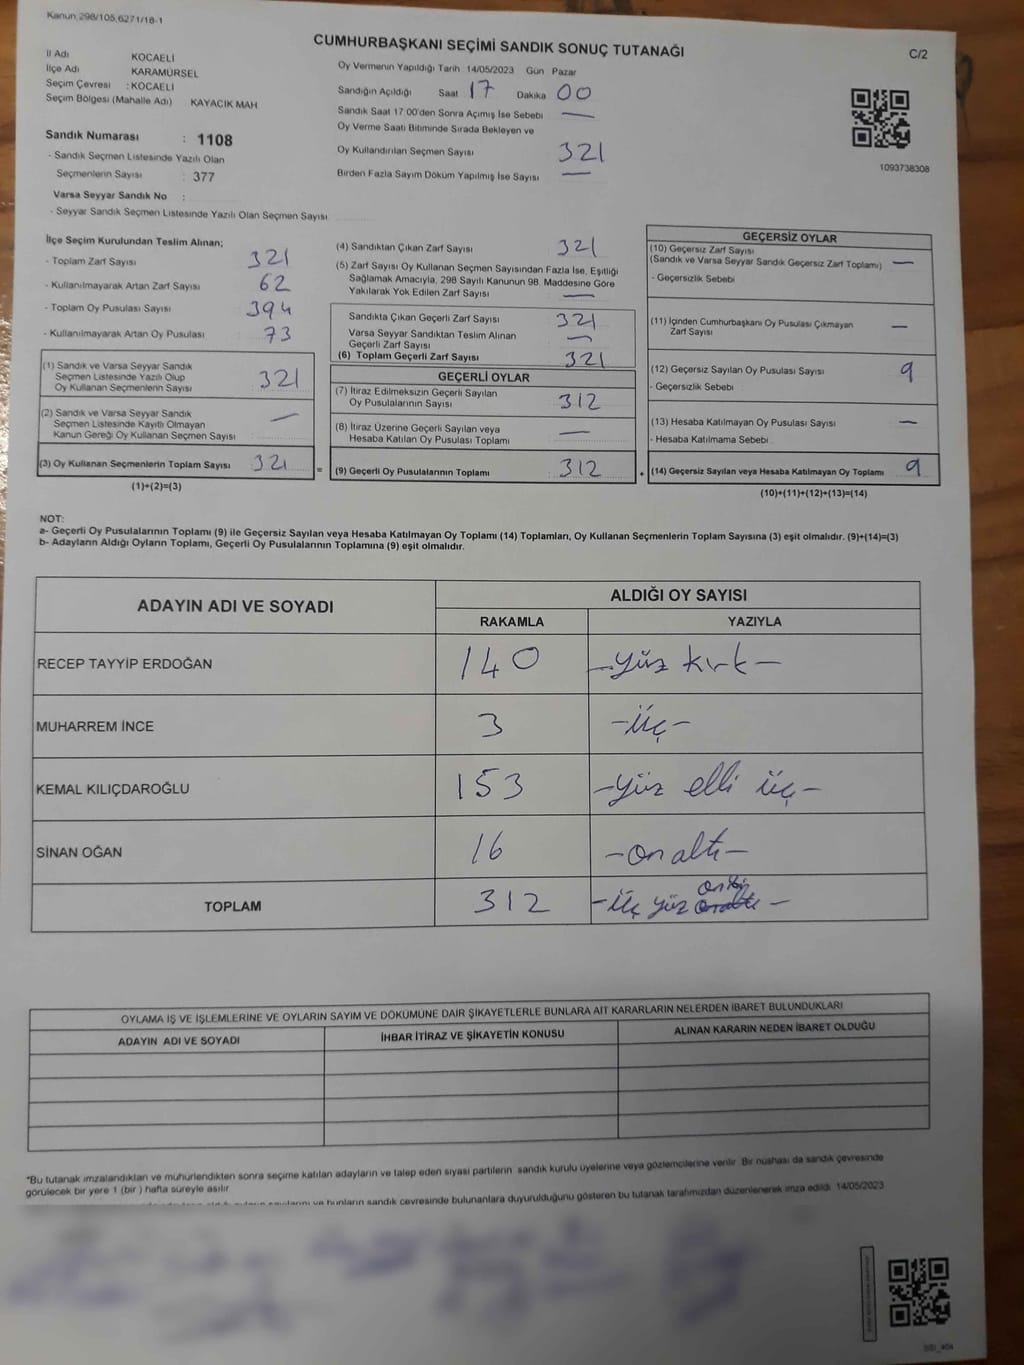 Kanun,298/105,6271/18-1
CUMHURBAŞKANI SEÇİMİ SANDIK SONUÇ TUTANAĞI
C/2
İl Adı KOCAELİ
İlçe Adı KARAMÜRSEL
Seçim Çevresi : KOCAELİ
Seçim Bölgesi (Mahalle Adı) KAYACIK MAH
Sandık Numarası : 1108
- Sandık Seçmen Listesinde Yazılı Olan
Seçmenlerin Sayısı : 377
Varsa Seyyar Sandık No :
- Seyyar Sandık Seçmen Listesinde Yazılı Olan Seçmen Sayısı
Oy Vermenin Yapıldığı Tarih 14/05/2023 Gün Pazar
Sandığın Açıldığı Saat 17 Dakika 00
Sandık Saat 17:00'den Sonra Açımış İse Sebebi —
Oy Verme Saati Bitiminde Sırada Bekleyen ve
Oy Kullandırılan Seçmen Sayısı 321
Birden Fazla Sayım Döküm Yapılmış İse Sayısı —
1093738308
İlçe Seçim Kurulundan Teslim Alınan;
- Toplam Zarf Sayısı 321
- Kullanılmayarak Artan Zarf Sayısı 62
- Toplam Oy Pusulası Sayısı 394
- Kullanılmayarak Artan Oy Pusulası 73
(1) Sandık ve Varsa Seyyar Sandık
Seçmen Listesinde Yazılı Olup
Oy Kullanan Seçmenlerin Sayısı 321
(2) Sandık ve Varsa Seyyar Sandık
Seçmen Listesinde Kayıtlı Olmayan
Kanun Gereği Oy Kullanan Seçmen Sayısı —
(3) Oy Kullanan Seçmenlerin Toplam Sayısı 321
(1)+(2)=(3)
(4) Sandıktan Çıkan Zarf Sayısı 321
(5) Zarf Sayısı Oy Kullanan Seçmen Sayısından Fazla İse, Eşitliği
Sağlamak Amacıyla, 298 Sayılı Kanunun 98. Maddesine Göre
Yakılarak Yok Edilen Zarf Sayısı —
Sandıkta Çıkan Geçerli Zarf Sayısı 321
Varsa Seyyar Sandıktan Teslim Alınan
Geçerli Zarf Sayısı —
(6) Toplam Geçerli Zarf Sayısı 321
GEÇERLİ OYLAR
(7) İtiraz Edilmeksizin Geçerli Sayılan
Oy Pusulalarının Sayısı 312
(8) İtiraz Üzerine Geçerli Sayılan veya
Hesaba Katılan Oy Pusulası Toplamı —
= (9) Geçerli Oy Pusulalarının Toplamı 312
GEÇERSİZ OYLAR
(10) Geçersiz Zarf Sayısı
(Sandık ve Varsa Seyyar Sandık Geçersiz Zarf Toplamı) —
- Geçersizlik Sebebi
(11) İçinden Cumhurbaşkanı Oy Pusulası Çıkmayan
Zarf Sayısı —
(12) Geçersiz Sayılan Oy Pusulası Sayısı 9
- Geçersizlik Sebebi
(13) Hesaba Katılmayan Oy Pusulası Sayısı —
- Hesaba Katılmama Sebebi
+ (14) Geçersiz Sayılan veya Hesaba Katılmayan Oy Toplamı 9
(10)+(11)+(12)+(13)=(14)
NOT:
a- Geçerli Oy Pusulalarının Toplamı (9) ile Geçersiz Sayılan veya Hesaba Katılmayan Oy Toplamı (14) Toplamları, Oy Kullanan Seçmenlerin Toplam Sayısına (3) eşit olmalıdır. (9)+(14)=(3)
b- Adayların Aldığı Oyların Toplamı, Geçerli Oy Pusulalarının Toplamına (9) eşit olmalıdır.
ADAYIN ADI VE SOYADI ALDIĞI OY SAYISI
RAKAMLA YAZIYLA
RECEP TAYYİP ERDOĞAN 140 -yüz kırk-
MUHARREM İNCE 3 -üç-
KEMAL KILIÇDAROĞLU 153 -yüz elli üç-
SİNAN OĞAN 16 -on altı-
TOPLAM 312 -üç yüz oniki-
OYLAMA İŞ VE İŞLEMLERİNE VE OYLARIN SAYIM VE DÖKÜMÜNE DAİR ŞİKAYETLERLE BUNLARA AİT KARARLARIN NELERDEN İBARET BULUNDUKLARI
ADAYIN ADI VE SOYADI İHBAR İTİRAZ VE ŞİKAYETİN KONUSU ALINAN KARARIN NEDEN İBARET OLDUĞU
*Bu tutanak imzalandıktan ve mühürlendikten sonra seçime katılan adayların ve talep eden siyasi partilerin sandık kurulu üyelerine veya gözlemcilerine verilir. Bir nüshası da sandık çevresinde
görülecek bir yere 1 (bir) hafta süreyle asılır.
ve bunların sandık çevresinde bulunanlara duyurulduğunu gösteren bu tutanak tarafımızdan düzenlenerek imza edildi. 14/05/2023